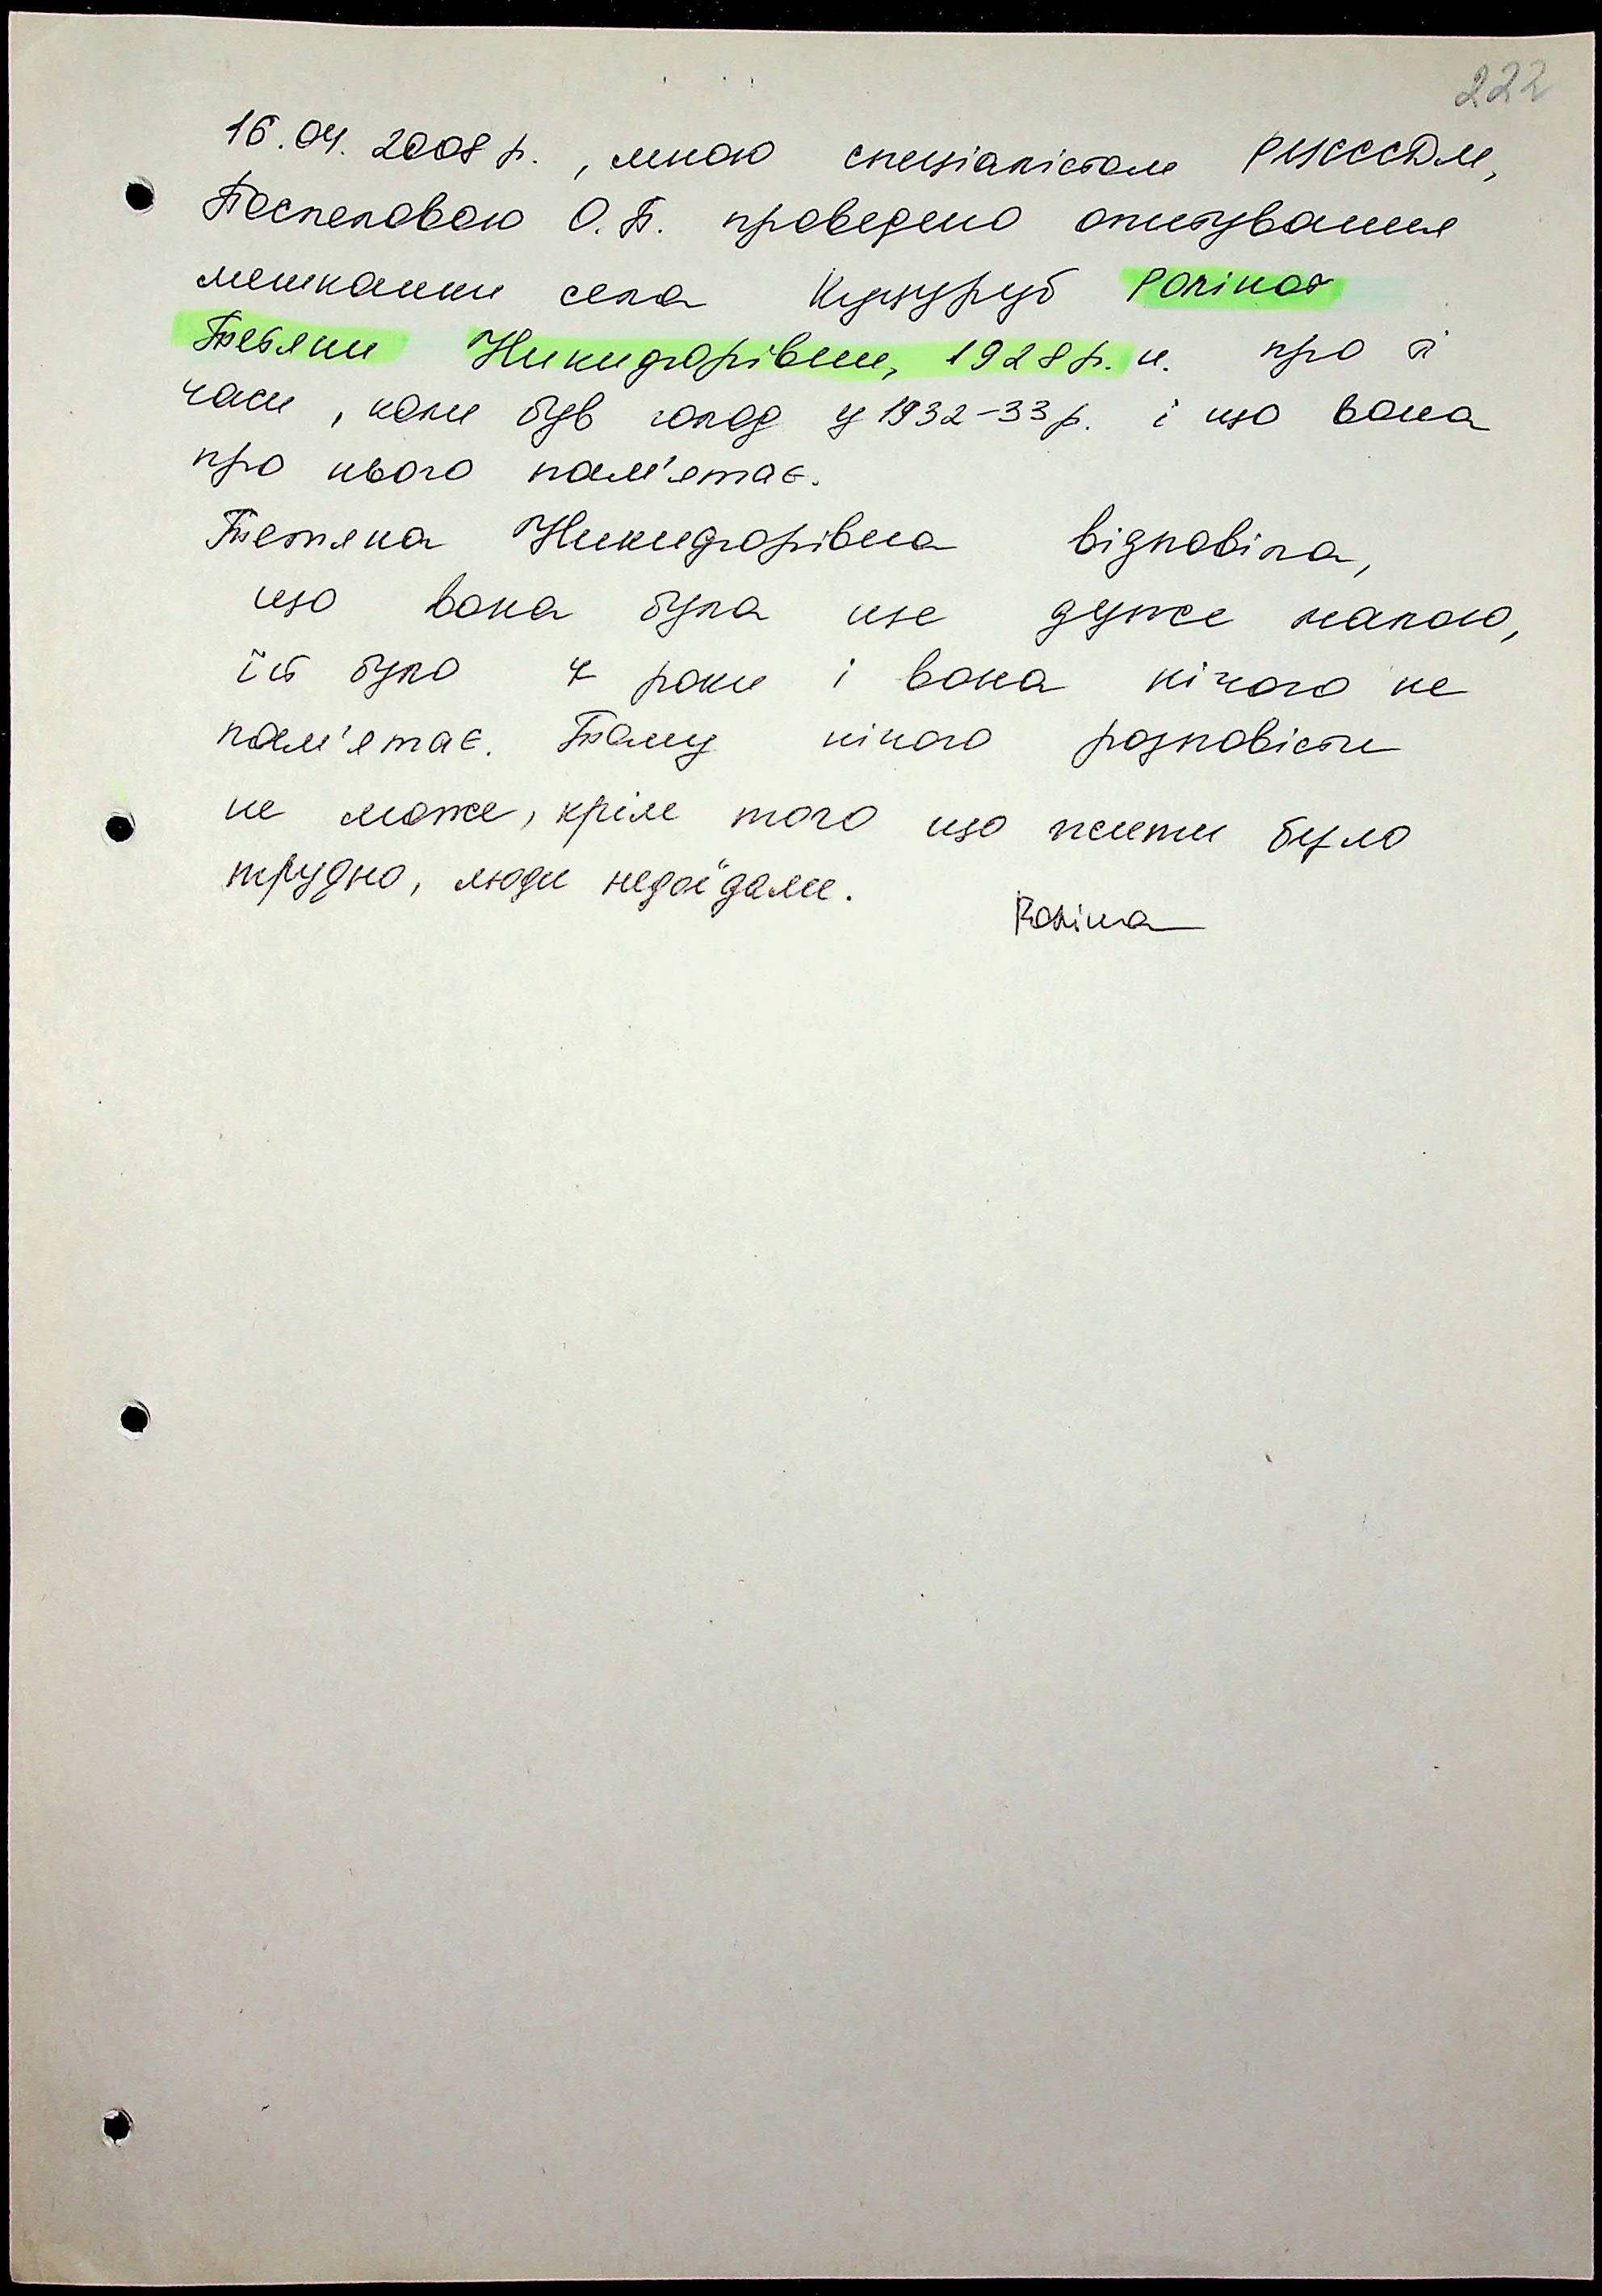 222
16.04. 2008 р., мною спеціалістом РЦСССДМ,
Поспеловою О.Б. проведено опитування
мешканки села Куцуруб Роліної
Тетяни Никифорівни, 1928 р.н. про ті
часи, коли був голод у 1932-33 р. і що вона
про нього пам'ятає.
Тетяна Никифорівна відповіла,
що вона була ще дуже малою,
їй було 4 роки і вона нічого не
пам'ятає. Тому нічого розповісти
не може, крім того що жити було
трудно, люди недоїдали.
Роліна